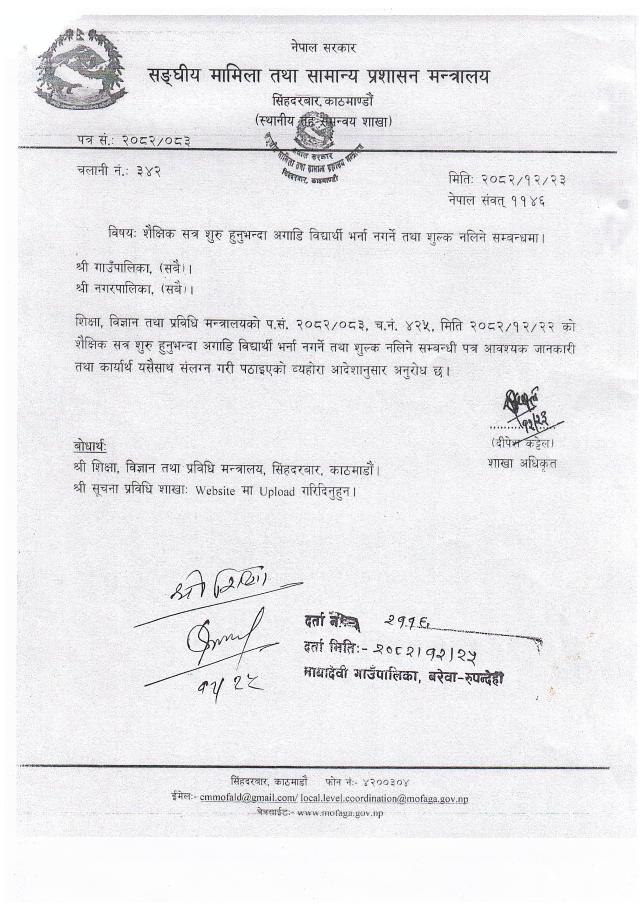 नेपाल सरकार
सङ्घीय मामिला तथा सामान्य प्रशासन मन्त्रालय
सिंहदरबार, काठमाण्डौं
(स्थानीय तह समन्वय शाखा)
पत्र सं.: २०८२/०८३
नेपाल सरकार
सङ्घीय मामिला तथा सामान्य प्रशासन मन्त्रालय
सिंहदरबार, काठमाण्डौ
चलानी नं.: ३४२
मितिः २०८२/१२/२३
नेपाल संवत् ११४६
विषयः शैक्षिक सत्र शुरु हुनुभन्दा अगाडि विद्यार्थी भर्ना नगर्ने तथा शुल्क नलिने सम्बन्धमा।
श्री गाउँपालिका, (सबै)।
श्री नगरपालिका, (सबै)।
शिक्षा, विज्ञान तथा प्रविधि मन्त्रालयको प.सं. २०८२/०८३, च.नं. ४२५, मिति २०८२/१२/२२ को
शैक्षिक सत्र शुरु हुनुभन्दा अगाडि विद्यार्थी भर्ना नगर्ने तथा शुल्क नलिने सम्बन्धी पत्र आवश्यक जानकारी
तथा कार्यार्थ यसैसाथ संलग्न गरी पठाइएको व्यहोरा आदेशानुसार अनुरोध छ।
१२/२३
(दीपेश कट्टेल)
शाखा अधिकृत
बोधार्थः
श्री शिक्षा, विज्ञान तथा प्रविधि मन्त्रालय, सिंहदरबार, काठमाडौं।
श्री सूचना प्रविधि शाखाः Website मा Upload गरिदिनुहुन।
श्री शिक्षा
१२/२५
दर्ता नं. २११६
दर्ता मितिः- २०८२/१२/२५
मायादेवी गाउँपालिका, बरेवा-रुपन्देही
सिंहदरबार, काठमाडौं फोन नं:- ४२००३०४
ईमेलः- cmmofald@gmail.com/ local.level.coordination@mofaga.gov.np
वेभसाईटः- www.mofaga.gov.np